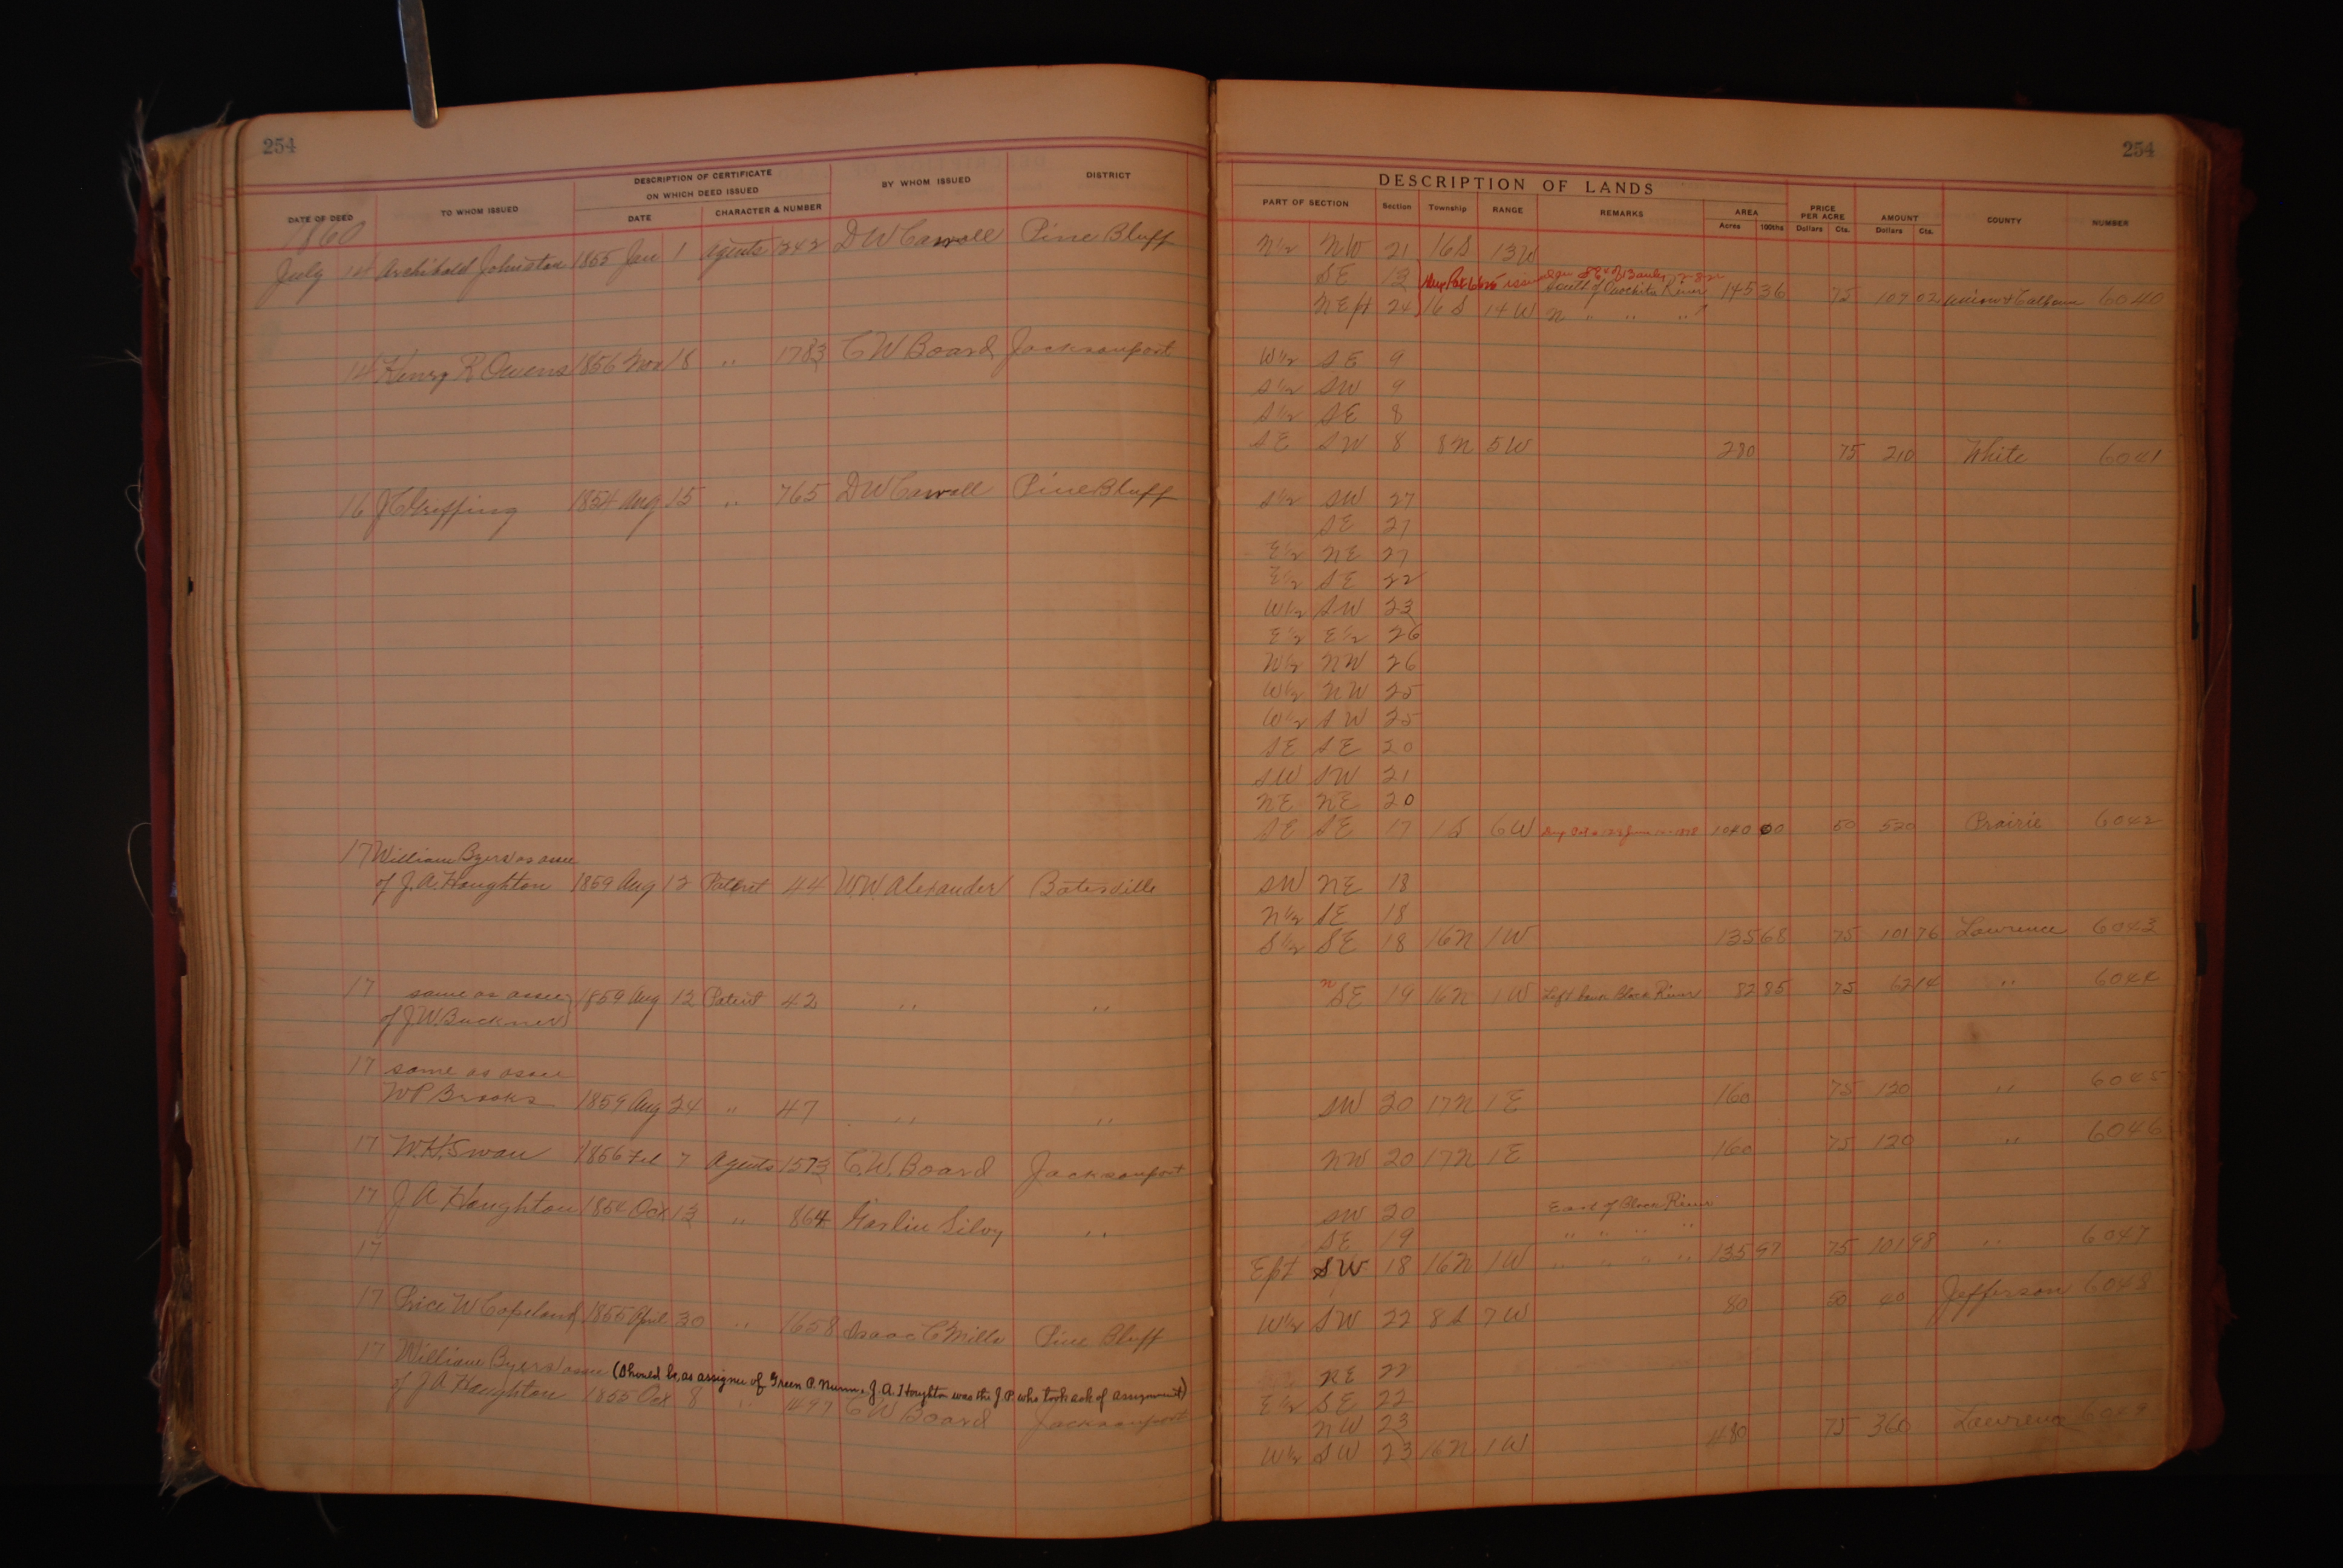 254
DATE OF DEED TO WHOM ISSUED DESCRIPTION OF CERTIFICATE ON WHICH DEED ISSUED DATE CHARACTER & NUMBER BY WHOM ISSUED DISTRICT
1860
July 14 Archibald Johnston 1855 Jan 1 Agents 1242 D W Carroll Pine Bluff
14 Henry R Owens 1856 Nov 18 " 1783 C W Board Jacksonport
16 J C Griffing 1854 Aug 15 " 765 D W Carroll Pine Bluff
17 William Byers as assee
of J. A. Houghton 1859 Aug 12 Patent 44 W. W. Alexander Batesville
17 same as assee
of J W. Buckner 1859 Aug 12 Patent 42 " "
17 same as assee
W P Brooks 1859 Aug 24 " 47 " "
17 W. H. Swan 1856 Feb 7 Agents 1573 C. W. Board Jacksonport
17 J A Houghton 1854 Oct 13 " 864 " "
17
17 Price W Copeland 1855 April 30 " 1658 Isaac C Mills Pine Bluff
17 William Byers assee (should be as assignee of Green P. Nunn. J. A. Houghton was the J. P. who took ack of assignment)
of J A Houghton 1855 Oct 8 " 1497 C W Board Jacksonport
254
DESCRIPTION OF LANDS
PART OF SECTION Section Township RANGE REMARKS AREA Acres 100ths PRICE PER ACRE Dollars Cts. AMOUNT Dollars Cts. COUNTY NUMBER
N½ NW 21 16S 13W
SE 13 South of Ouachita River 145 36 75 109 02 Union & Calhoun 6040
NE pt 24 16S 14W N " " "
W½ SE 9
S½ SW 9
S½ SE 8
SE SW 8 8N 5W 280 75 210 White 6041
S½ SW 27
SE 27
E½ NE 27
E½ SE 22
W½ SW 23
E½ E½ 26
W½ NW 26
W½ NW 25
W½ SW 25
SE SE 20
SW SW 21
NE NE 20
SE SE 17 1S 6W 1040 00 50 520 Prairie 6042
SW NE 18
N½ SE 18
S½ SE 18 16N 1W 135 68 75 101 76 Lawrence 6043
N SE 19 16N 1W Left bank Black River 82 85 75 62 14 " 6044
SW 20 17N 1E 160 75 120 " 6045
NW 20 17N 1E 160 75 120 " 6046
SW 20 East of Black River
SE 19 " " " "
E pt SW 18 16N 1W " " " " 135 97 75 101 98 " 6047
W½ SW 22 8S 7W 80 50 40 Jefferson 6048
NE 22
E½ SE 22
NW 23
W½ SW 23 16N 1W 480 75 360 Lawrence 6049